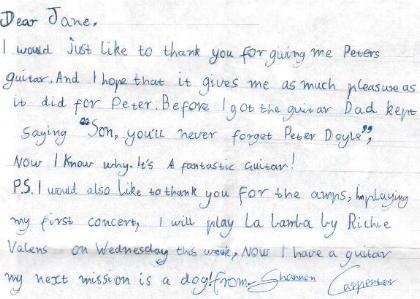 Dear Jane.
I would just like to thank you for giving me Peters
guitar. And I hope that it gives me as much pleasure as
it did for Peter. Before I got the guitar Dad kept
saying "Son, you'll never forget Peter Doyle",
Now I know why. It's A fantastic Guitar!
P.S. I would also like to thank you for the amps, Implaying
my first concert, I will play La bamba by Richie
Valens on Wednesday this week, Now I have a guitar
my next mission is a dog! from Shannon Carpenter